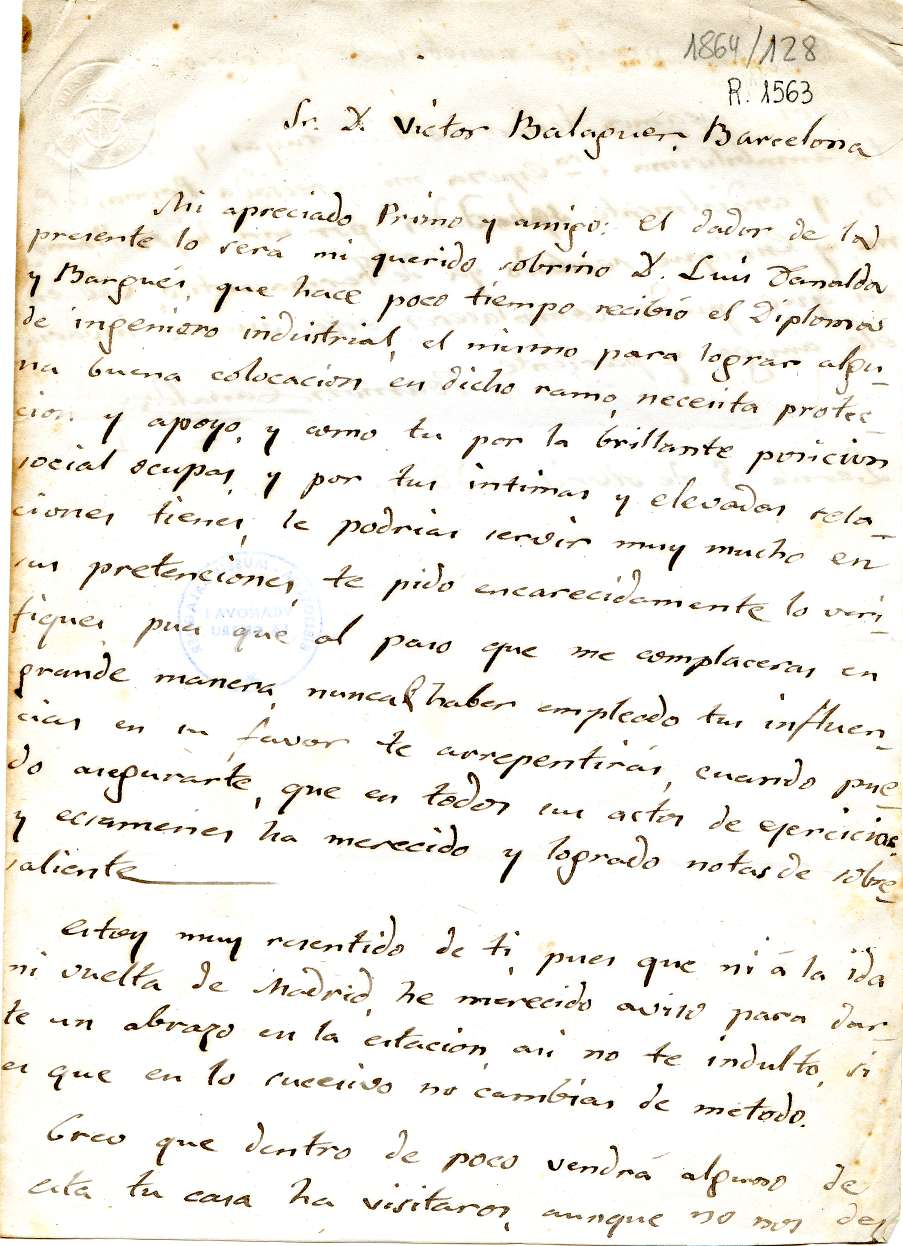 1864/128
R. 1563
Sr. D. Victor Balaguer, Barcelona
Mi apreciado Primo y amigo: el dador de la
presente lo será mi querido sobrino D. Luis Danalda
y Bargués, que hace poco tiempo recibió el Diploma
de ingeniero industrial, el mismo para lograr algu-
na buena colocacion en dicho ramo, necesita protec-
cion y apoyo, y como tu por la brillante posicion
social ocupas, y por tus intimas y elevadas rela-
ciones tienes, le podrias servir muy mucho en
sus pretenciones, te pido encarecidamente lo veri-
fiques, pues que al paso que me complaceras en
grande manera, nunca haber empleado tus influen-
cias en su favor te arrepentirás, cuando pue-
do asegurarte, que en todos sus actos de ejercicios
y ecsamenes ha merecido y logrado notas de sobre-
saliente
Estoy muy resentido de ti, pues que ni á la ida
ni vuelta de Madrid, he merecido aviso para dar-
te un abrazo en la estacion, asi no te indulto, si
es que en lo sucesivo no cambias de metodo.
Creo que dentro de poco vendrá alguno de
esta tu casa ha visitaros, aunque no nos des